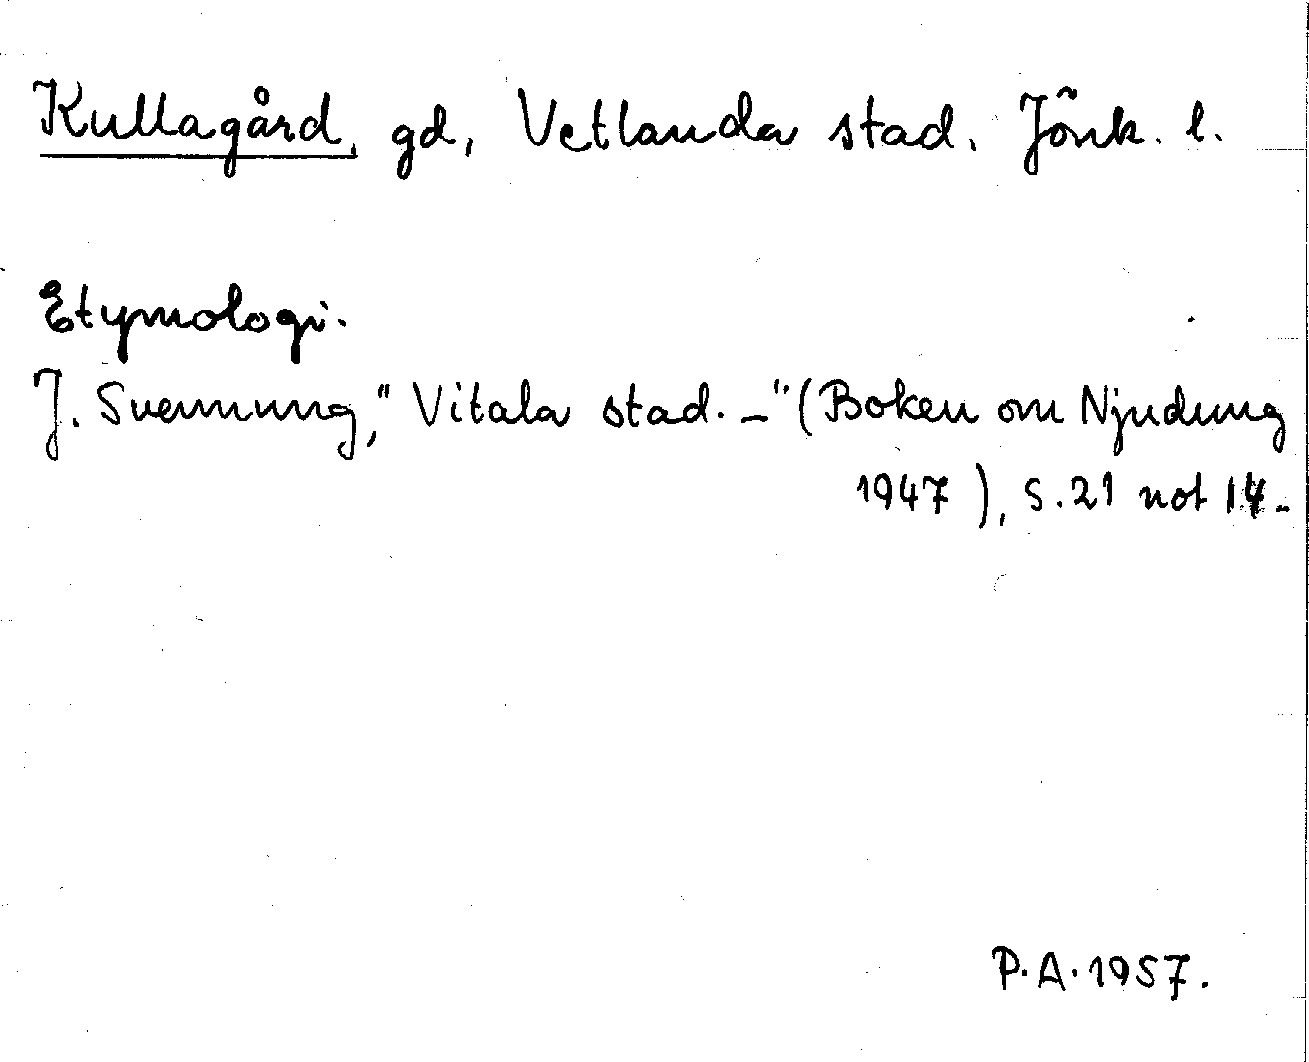 Kullagård, gd, Vetlanda stad. Jönk. l.
Etymologi.
J. Svennung, "Vitala stad. –" (Boken om Njudung
1947), s. 21 not 14.
P.A. 1957.